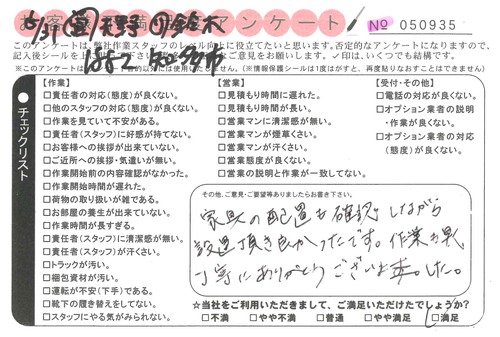 アンケート
No 050935
このアンケートは、弊社作業スタッフのレベル向上に役立てたいと思います。否定的なアンケートになりますので、
ご意見をお願いします。✓印は、いくつでも結構です。
(※情報保護シールは1度がはすと、再度貼りなおすことはできません)
チェックリスト
【作業】
□責任者の対応(態度)が良くない。
□他のスタッフの対応(態度)が良くない。
□作業を見ていて不安がある。
□責任者(スタッフ)に好感が持てない。
□お客様への挨拶が出来ていない。
□ご近所への挨拶・気遣いが無い。
□作業開始前の内容確認がなかった。
□作業開始時間が遅れた。
□荷物の取り扱いが雑である。
□お部屋の養生が出来ていない。
□作業時間が長すぎる。
□責任者(スタッフ)に清潔感が無い。
□責任者(スタッフ)が汗くさい。
□トラックが汚い。
□梱包資材が汚い。
□運転が不安(下手)である。
□靴下の履き替えをしてない。
□スタッフにやる気がみられない。
【営業】
□見積もり時間に遅れた。
□見積もり時間が長い。
□営業マンに清潔感が無い。
□営業マンが煙草くさい。
□営業マンが汗くさい。
□営業態度が良くない。
□営業の説明と作業が一致してない。
【受付・その他】
□電話の対応が良くない。
□オプション業者の説明
・作業が良くない。
□オプション業者の対応
(態度)が良くない。
その他、ご意見・ご要望等ありましたらお書き下さい。
家具の配置も確認しながら
設置頂き良かったです。作業も早く
丁寧にありがとうございました。
☆当社をご利用いただきまして、ご満足いただけたでしょうか?
□不満 □やや不満 □普通 □やや満足 □満足